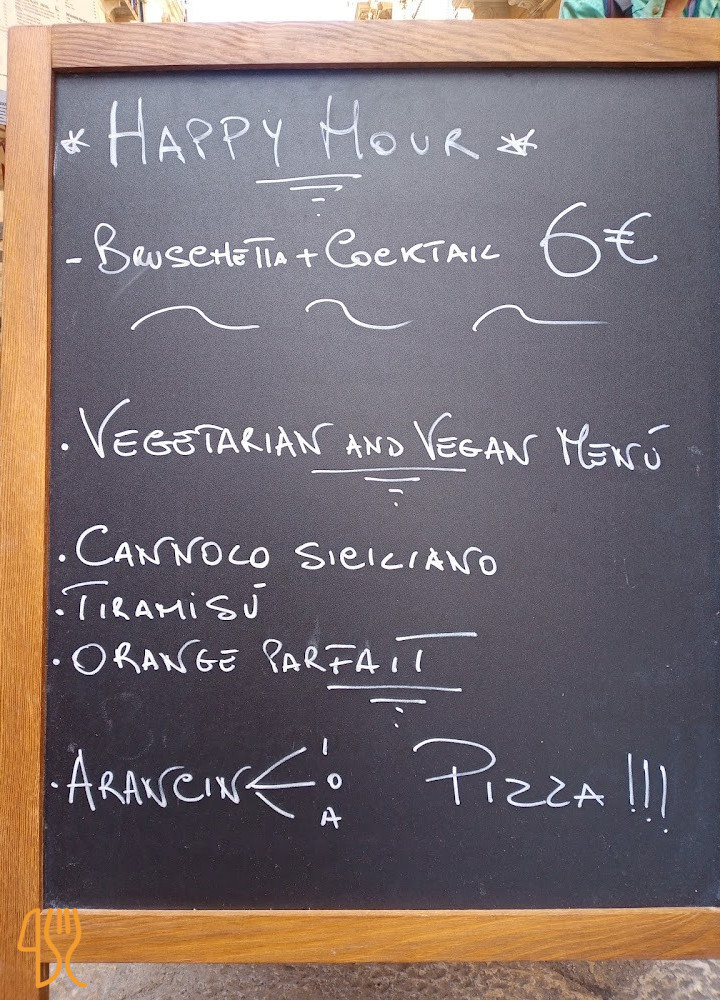 * HAPPY HOUR *
- BRUSCHETTA + COCKTAIL 6€
· VEGETARIAN AND VEGAN MENÚ
· CANNOLO SICILIANO
· TIRAMISÚ
· ORANGE PARFAIT
· ARANCIN < I O A PIZZA !!!